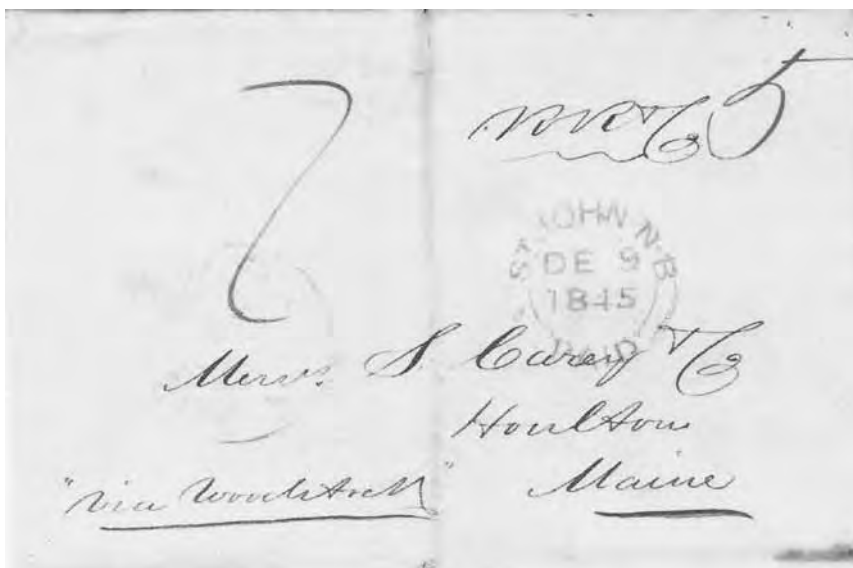 7
5
ST JOHN N.B
DE 9
1845
PAID
Messrs. S. Carey & Co
Houlton
Maine
"via Woodstock"